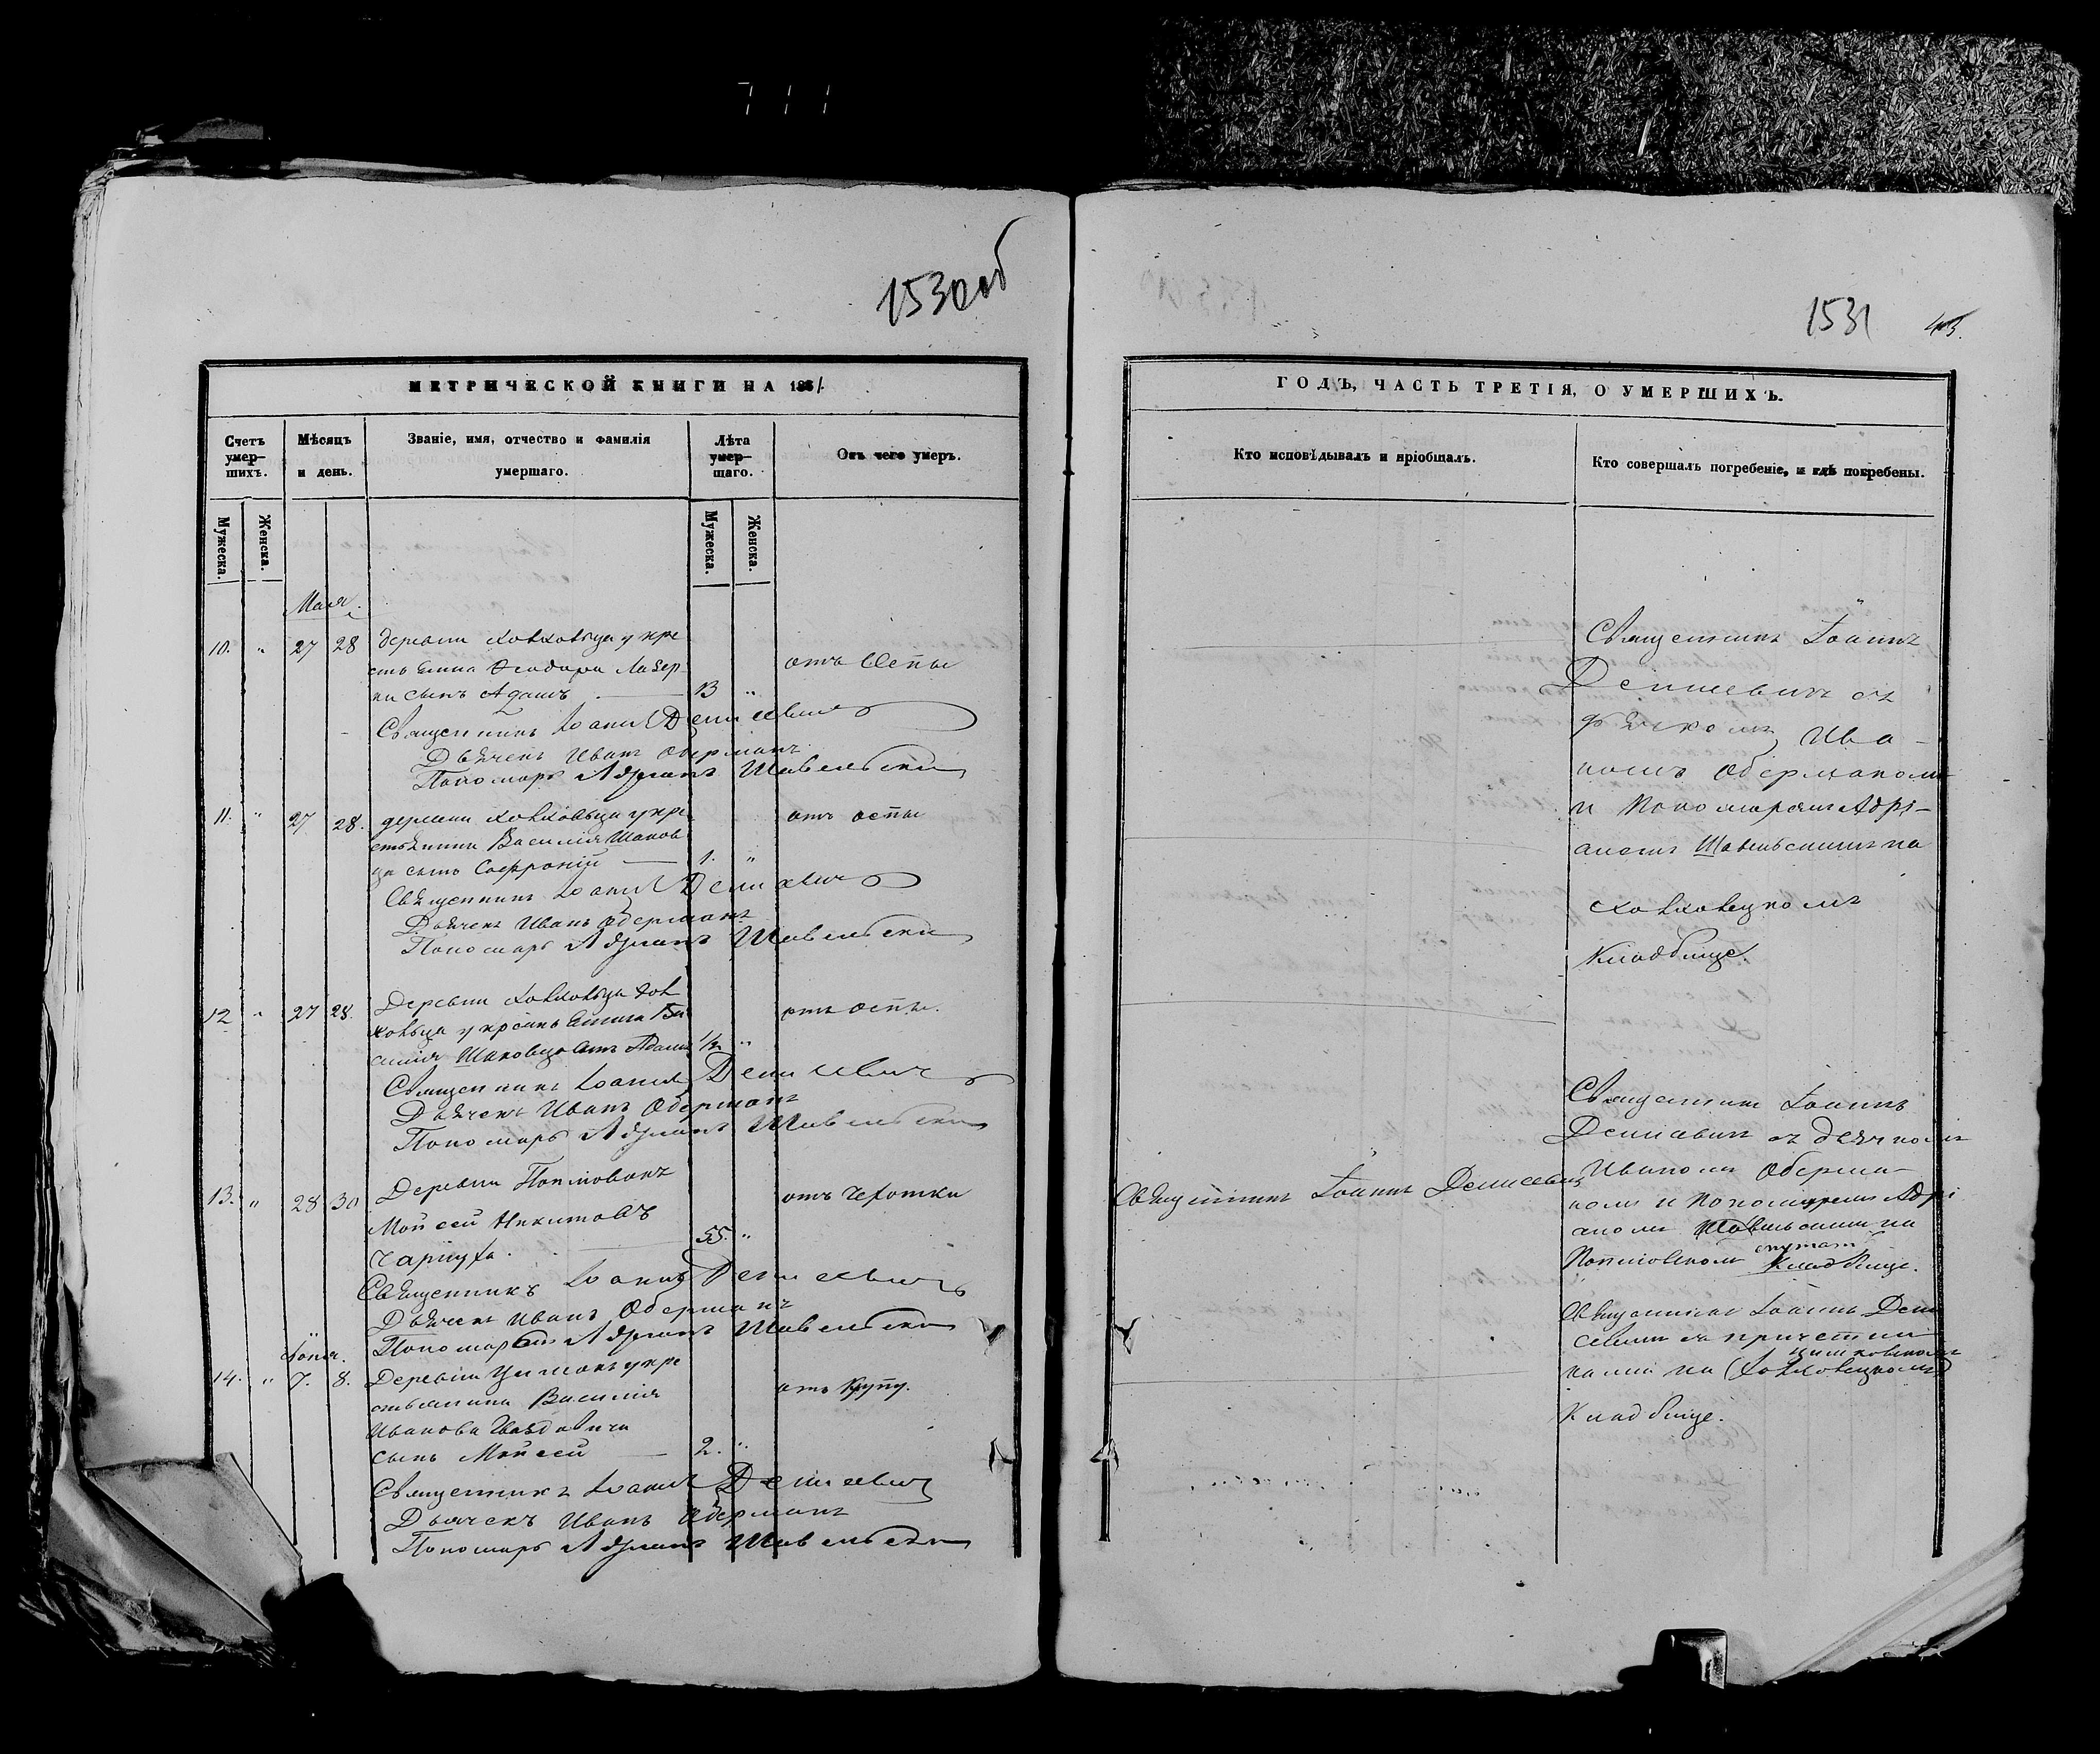 711
1530об
МЕТРИЧЕСКОЙ КНИГИ НА 1861
Счетъ умер-шихъ.
Мѣсяцъ и день.
Званіе, имя, отчество и фамилія умершаго.
Лѣта умер-шаго.
Отъ чего умеръ.
Мужеска.
Женска.
Мужеска.
Женска.
Маія.
10. " 27 28 деревни Ховховыца у кре
стьянина Ѳеодора
ки сынъ Адамъ 13 " отъ Оспы
Священникъ Іоаннъ Денисевичъ
Дьячекъ Иванъ Оберманъ
Пономарь Адріанъ Шавельскій
11. " 27 28. деревни Ховховыца у кре
стьянина Василія Шаков
ца сынъ Софроній 1. " отъ оспы
Священникъ Іоаннъ Денисевичъ
Дьячекъ Иванъ Оберманъ
Пономарь Адріанъ Шавельскій
12 " 27 28. Деревни Ховховыца
у крестьянина Ва
силія Шаковца сынъ Адамъ 1/2 " отъ оспы.
Священникъ Іоаннъ Денисевичъ
Дьячекъ Иванъ Оберманъ
Пономарь Адріанъ Шавельскій
13. " 28 30 Деревни
Мойсей Никитовъ
55. " отъ чехотки
Священникъ Іоаннъ Денисевичъ
Дьячекъ Иванъ Оберманъ
Пономарь Адріанъ Шавельскій
Іюня.
14. " 7. 8. Деревни Цишокъ у кре
стьянина Василія
Иванова
сынъ Мойсей 2. " отъ Крупу.
Священникъ Іоаннъ Денисевичъ
Дьячекъ Иванъ Оберманъ
Пономарь Адріанъ Шавельскій
1531
ГОДЪ, ЧАСТЬ ТРЕТІЯ, О УМЕРШИХЪ.
Кто исповѣдывалъ и пріобщалъ.
Кто совершалъ погребеніе, и гдѣ погребены.
Священникъ Іоаннъ
Денисевичъ съ
дьячкомъ Ива-
номъ Оберманомъ
и Пономаремъ Адрі-
аномъ Шавельскимъ на
Ховховецкомъ
Кладбище.
Священникъ Іоаннъ Денисевичъ
Священникъ Іоаннъ
Денисевичъ съ дьячкомъ
Иваномъ Оберма-
номъ и Пономаремъ Адрі
аномъ Шавельскимъ на
Кладбище.
Священникъ Іоаннъ Дени
севичъ съ причетни
ками на (Ховховецкомъ)
Кладбище.